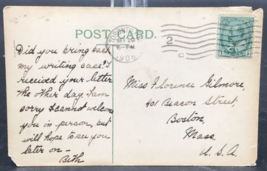 POST CARD.
5-PM
2
C
Did you bring back
my writing case? I
received your letter
the other day. I am
sorry I cannot welcome
you in person, but
will hope to see you
later on —
Beth
Miss Florence Gilmore
401 Beacon Street,
Boston,
Mass
U.S.A